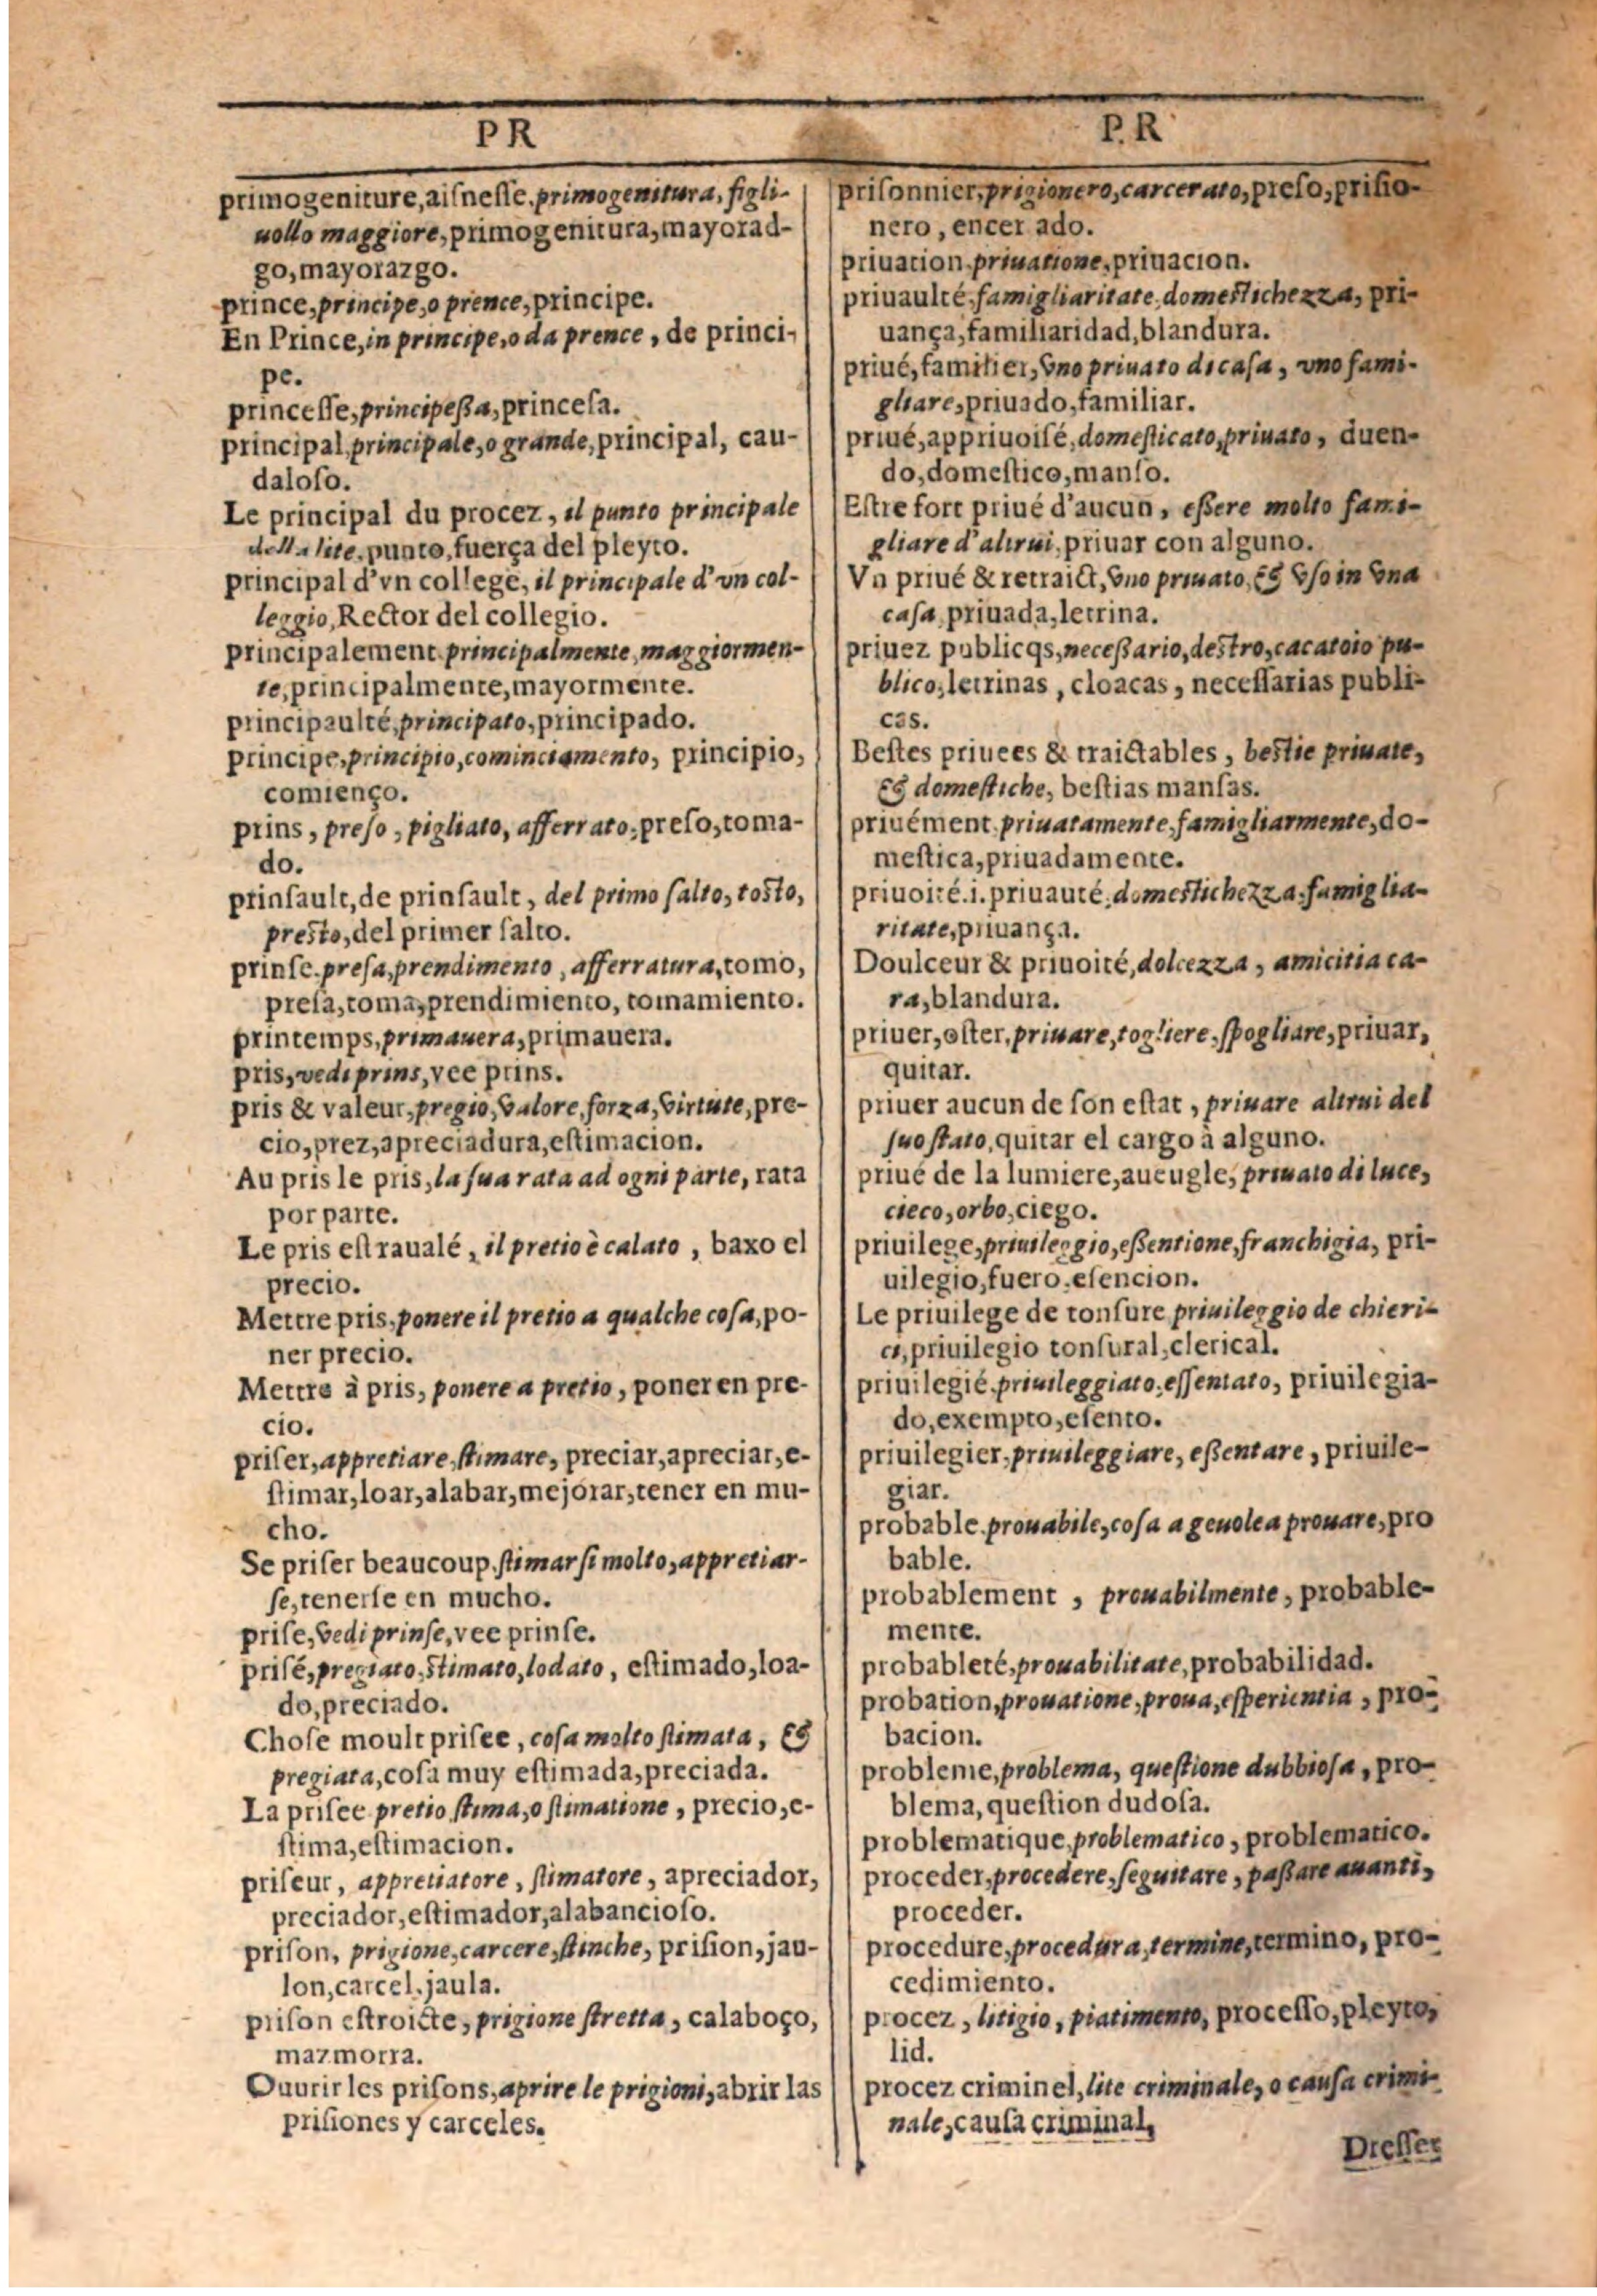 PR
primogeniture,aiſneſſe.primogenitura, figli-
uollo maggiore,primogenitura,mayorad-
go,mayorazgo.
prince,principe,o prence,principe.
En Prince,in principe,o da prence, de princi-
pe.
princeſſe,principeßa,princeſa.
principal,principale,o grande,principal, cau-
daloſo.
Le principal du procez, il punto principale
della lite.punto,fuerça del pleyto.
principal d'vn college, il principale d'vn col-
leggio,Rector del collegio.
principalement.principalmente,maggiormen-
te,principalmente,mayormente.
principaulté,principato,principado.
principe,principio,cominciamento, principio,
comienço.
prins, preſo, pigliato, afferrato,preſo,toma-
do.
prinſault,de prinſault, del primo ſalto, toſto,
preſto,del primer ſalto.
prinſe.preſa,prendimento, afferratura,tomo,
preſa,toma,prendimiento, tomamiento.
printemps,primauera,primauera.
pris,vedi prins,vee prins.
pris & valeur,pregio,valore,forza,virtute,pre-
cio,prez,apreciadura,eſtimacion.
Au pris le pris,la ſua rata ad ogni parte, rata
por parte.
Le pris eſt raualé, il pretio è calato, baxo el
precio.
Mettre pris,ponere il pretio a qualche coſa,po-
ner precio.
Mettre à pris, ponere a pretio, poner en pre-
cio.
priſer,appretiare,ſtimare, preciar,apreciar,e-
ſtimar,loar,alabar,mejorar,tener en mu-
cho.
Se priſer beaucoup.ſtimarſi molto,appretiar-
ſe,tenerſe en mucho.
priſe,vedi prinſe,vee prinſe.
priſé,pregiato,ſtimato,lodato, eſtimado,loa-
do,preciado.
Choſe moult priſee, coſa molto ſtimata, &
pregiata,coſa muy eſtimada,preciada.
La priſee pretio,ſtima,o ſtimatione, precio,e-
ſtima,eſtimacion.
priſeur, appretiatore, ſtimatore, apreciador,
preciador,eſtimador,alabancioſo.
priſon, prigione,carcere,ſtinche, priſion,jau-
lon,carcel,jaula.
priſon eſtroicte, prigione ſtretta, calaboço,
mazmorra.
Ouurir les priſons,aprire le prigioni,abrir las
priſiones y carceles.
P.R
priſonnier,prigionero,carcerato,preſo,priſio-
nero, encer ado.
priuation.priuatione,priuacion.
priuaulté,famigliaritate,domeſtichezza, pri-
uança,familiaridad,blandura.
priué,familier,vno priuato di caſa, vno fami-
gliare,priuado,familiar.
priué,appriuoiſé,domeſticato,priuato, duen-
do,domeſtico,manſo.
Eſtre fort priué d'aucun, eßere molto fami-
gliare d'altrui,priuar con alguno.
Vn priué & retraict,vno priuato,& vſo in vna
caſa,priuada,letrina.
priuez publicqs,neceßario,deſtro,cacatoio pu-
blico,letrinas, cloacas, neceſſarias publi-
cas.
Beſtes priuees & traictables, beſtie priuate,
& domeſtiche, beſtias manſas.
priuément,priuatamente,famigliarmente,do-
meſtica,priuadamente.
priuoité.i.priuauté,domeſtichezza,famiglia-
ritate,priuança.
Doulceur & priuoité,dolcezza, amicitia ca-
ra,blandura.
priuer,oſter,priuare,togliere,ſpogliare,priuar,
quitar.
priuer aucun de ſon eſtat, priuare altrui del
ſuo ſtato,quitar el cargo à alguno.
priué de la lumiere,aueugle, priuato di luce,
cieco,orbo,ciego.
priuilege,priuileggio,eßentione,franchigia, pri-
uilegio,fuero,eſencion.
Le priuilege de tonſure priuileggio de chieri-
ci,priuilegio tonſural,clerical.
priuilegié,priuileggiato,eſſentato, priuilegia-
do,exempto,eſento.
priuilegier,priuileggiare, eßentare, priuile-
giar.
probable.prouabile,coſa ageuole a prouare,pro
bable.
probablement, prouabilmente, probable-
mente.
probableté,prouabilitate,probabilidad.
probation,prouatione,proua,eſperientia, pro-
bacion.
probleme,problema, queſtione dubbioſa, pro-
blema,queſtion dudoſa.
problematique,problematico, problematico.
proceder,procedere,ſeguitare, paßare auanti,
proceder.
procedure,procedura,termine,termino, pro-
cedimiento.
procez, litigio, piatimento, proceſſo,pleyto,
lid.
procez criminel,lite criminale, o cauſa crimi-
nale,cauſa criminal,
Dreſſer